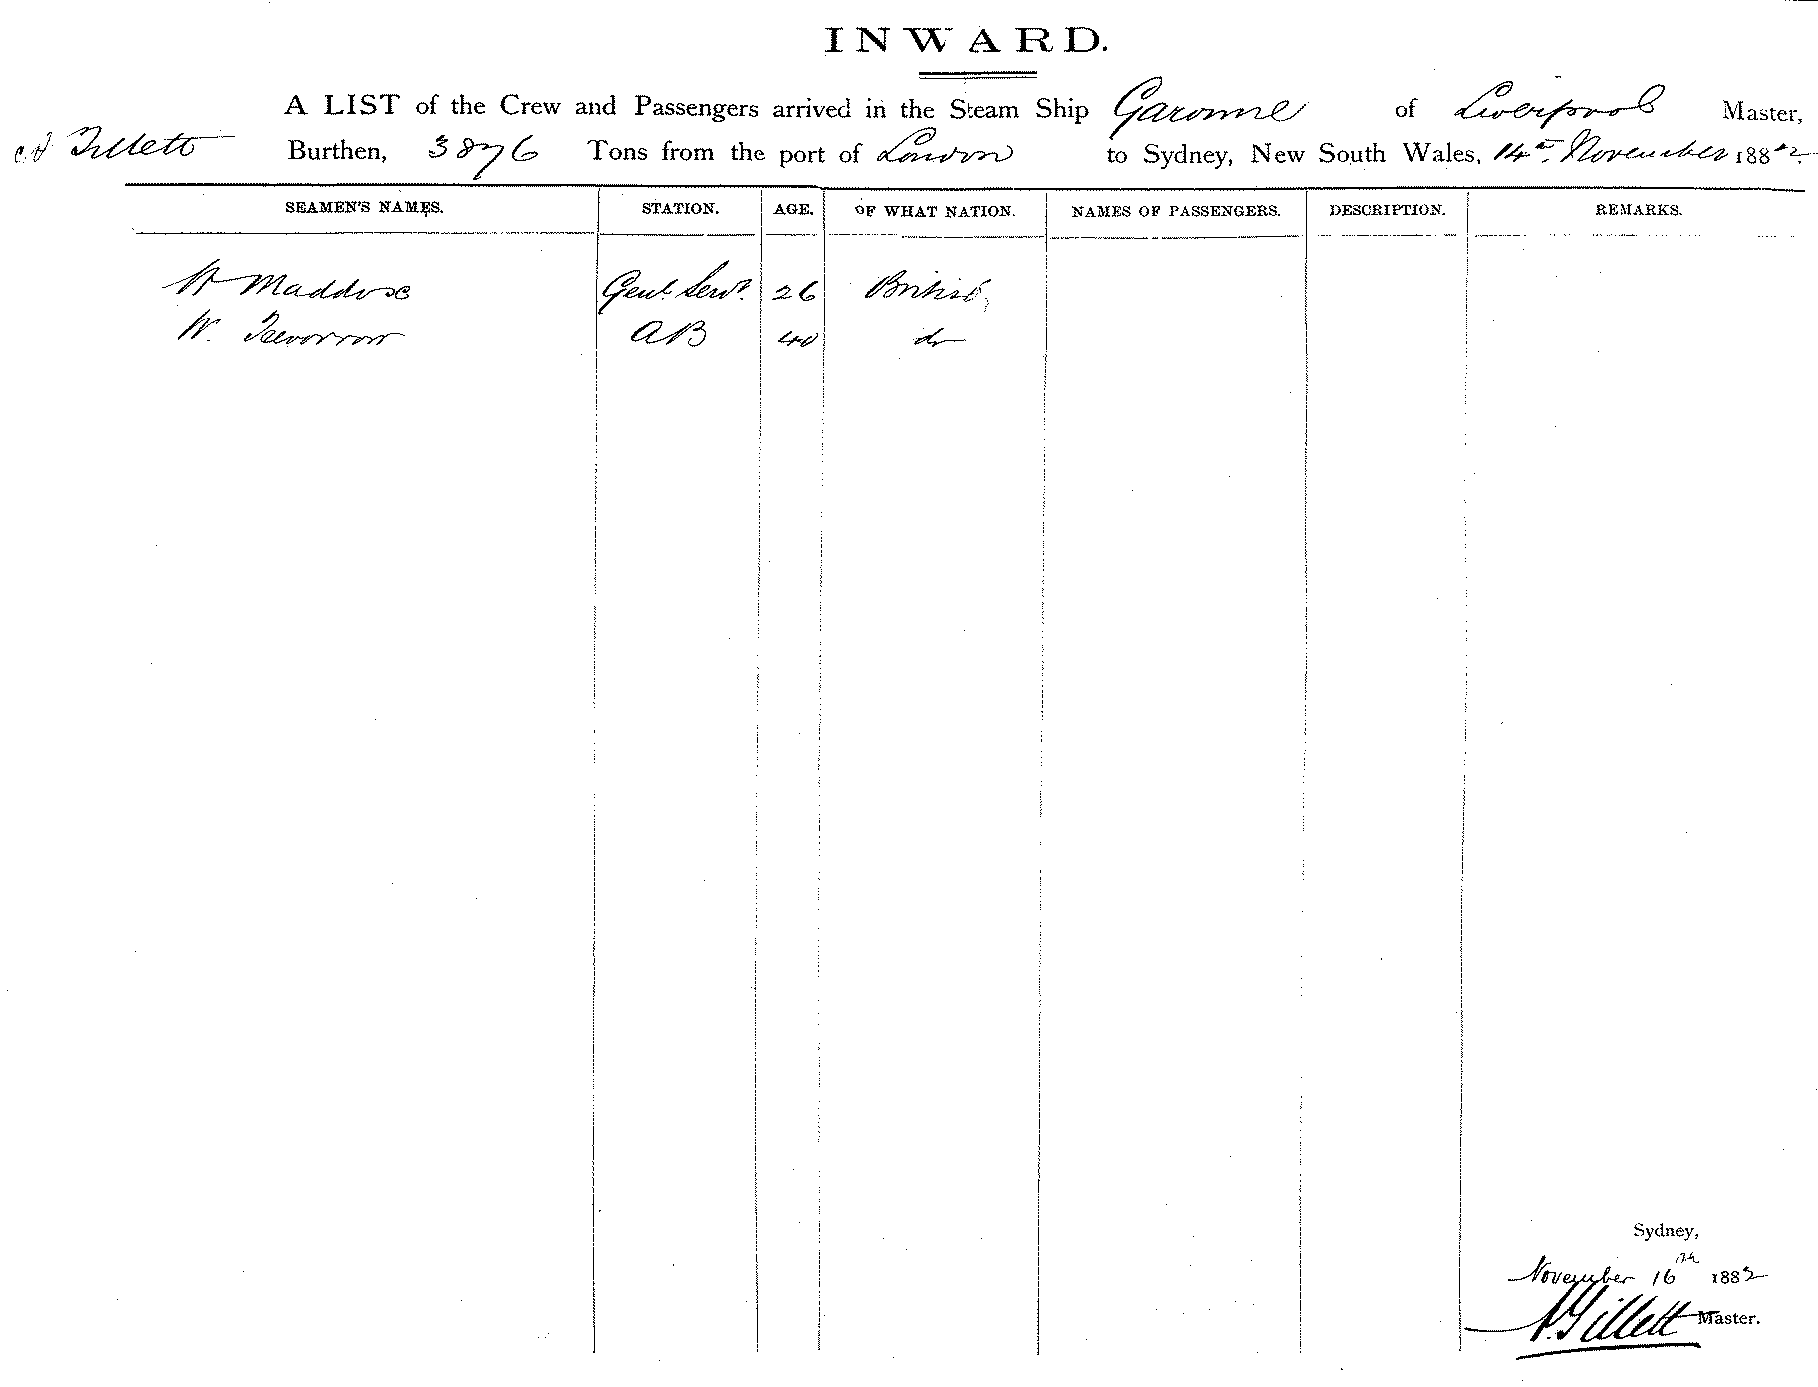 INWARD.
A LIST of the Crew and Passengers arrived in the Steam Ship Garonne of Liverpool Master,
Tillett Burthen, 3876 Tons from the port of London to Sydney, New South Wales, 14th November 1882
SEAMEN'S NAMES. STATION. AGE. OF WHAT NATION. NAMES OF PASSENGERS. DESCRIPTION. REMARKS.
Maddox Genl. Servt. 26 British
W. Trevorrow AB 40 do
Sydney,
November 16th 1882
Master.